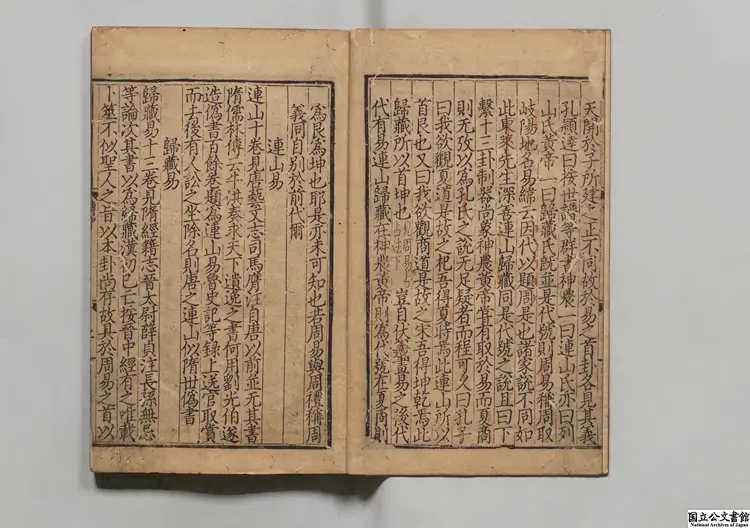 天開於子所建之正不同故於易之首卦各見其義
孔穎達曰按世譜等群書神農一曰連山氏亦曰列
山氏黃帝一曰歸藏氏旣並是代號則周易稱周取
岐陽地名易緯云因代以題周是也諸家說不同如
此東萊先生深 連山歸藏同是代號之說且曰下
繫十三卦制器尚象神農黃帝皆有取於易而夏商
則无攷以爲孔氏之說无足疑者而程可久曰孔子
曰我欲觀夏道是故之杞吾得夏時焉此連山所以
首艮也又曰我欲觀商道是故之宋吾得坤乾焉此
歸藏所以首坤也見周易占法下豈自伏羲畫易之後代
代有易連山歸藏在神農黃帝則爲代號在夏商則
爲艮爲坤也耶是亦未可知也若周易與周禮稱周
義同自別於前代爾
連山易
連山十卷見唐藝文志司馬膺注自唐以前並无其書
隋儒林傳云牛洪奏求天下遺逸之書何用劉光伯遂
造僞書百餘卷題爲連山易魯史記等錄上送官取賞
而去後有人訟之坐除名則唐之連山似隋世僞書
歸藏易
歸藏易十三卷見隋經籍志晉太尉薛貞注長孫無忌
等論次其書以爲歸藏漢初已亡按晉中經有之唯載
卜筮不似聖人之旨以本卦尚存故具於周易之首以
国立公文書館
National Archives of Japan